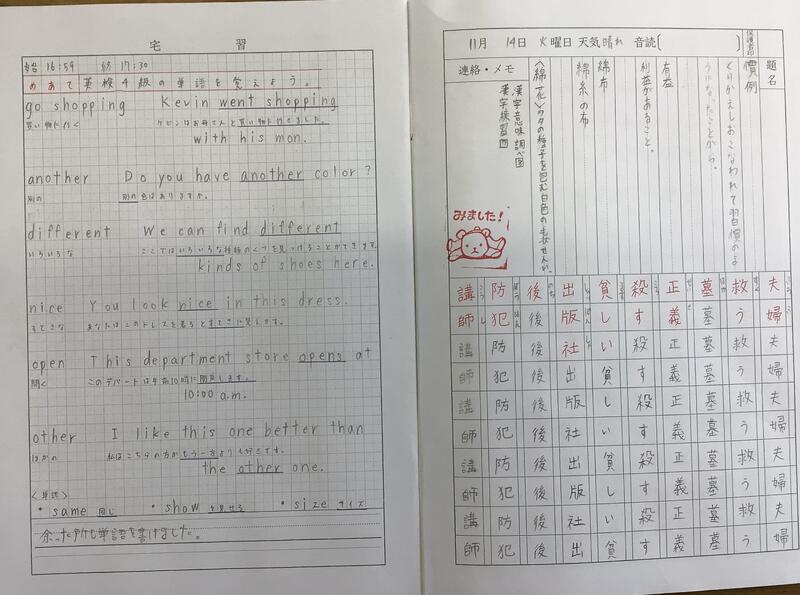 宅習
始 16:59 終 17:30
めあて 英検4級の単語を覚えよう。
go shopping Kevin went shopping
買い物に行く ケビンはお母さんと買い物に行きました。
with his mon.
another Do you have another color?
別の 別の色はありますか。
different We can find different
いろいろな ここではいろいろな種類のくつを見つけることができます。
kinds of shoes here.
nice You look nice in this dress.
すてきな あなたはこのドレスを着るとすてきに見えます。
open This department store opens at
開く このデパートは午前10時に開店します。
10:00 a.m.
other I like this one better than
ほかの 私はこちらの方がもう一方よりも好きです。
the other one.
<単語>
・same 同じ ・show を見せる ・size サイズ
余った所も単語を書けました。
11月 14日 火曜日 天気 晴れ 音読( )
保護者印
題名
慣例
くりかえしおこなわれて習慣のよ
うになったことがら。
有益
利益があること。
綿布
綿糸の布
<綿花>ワタの種子を包む白色の毛
連絡・メモ
漢字意味調べ
漢字練習
みました!
夫婦夫婦夫婦夫婦夫婦
救う救う救う救う救う
墓墓墓墓墓墓墓墓墓墓
正義正義正義正義正義
殺す殺す殺す殺す殺す
貧しい貧しい貧しい貧
出版社出版社出版社出
後後後後後後後後後後
防犯防犯防犯防犯防犯
講師講師講師講師講師